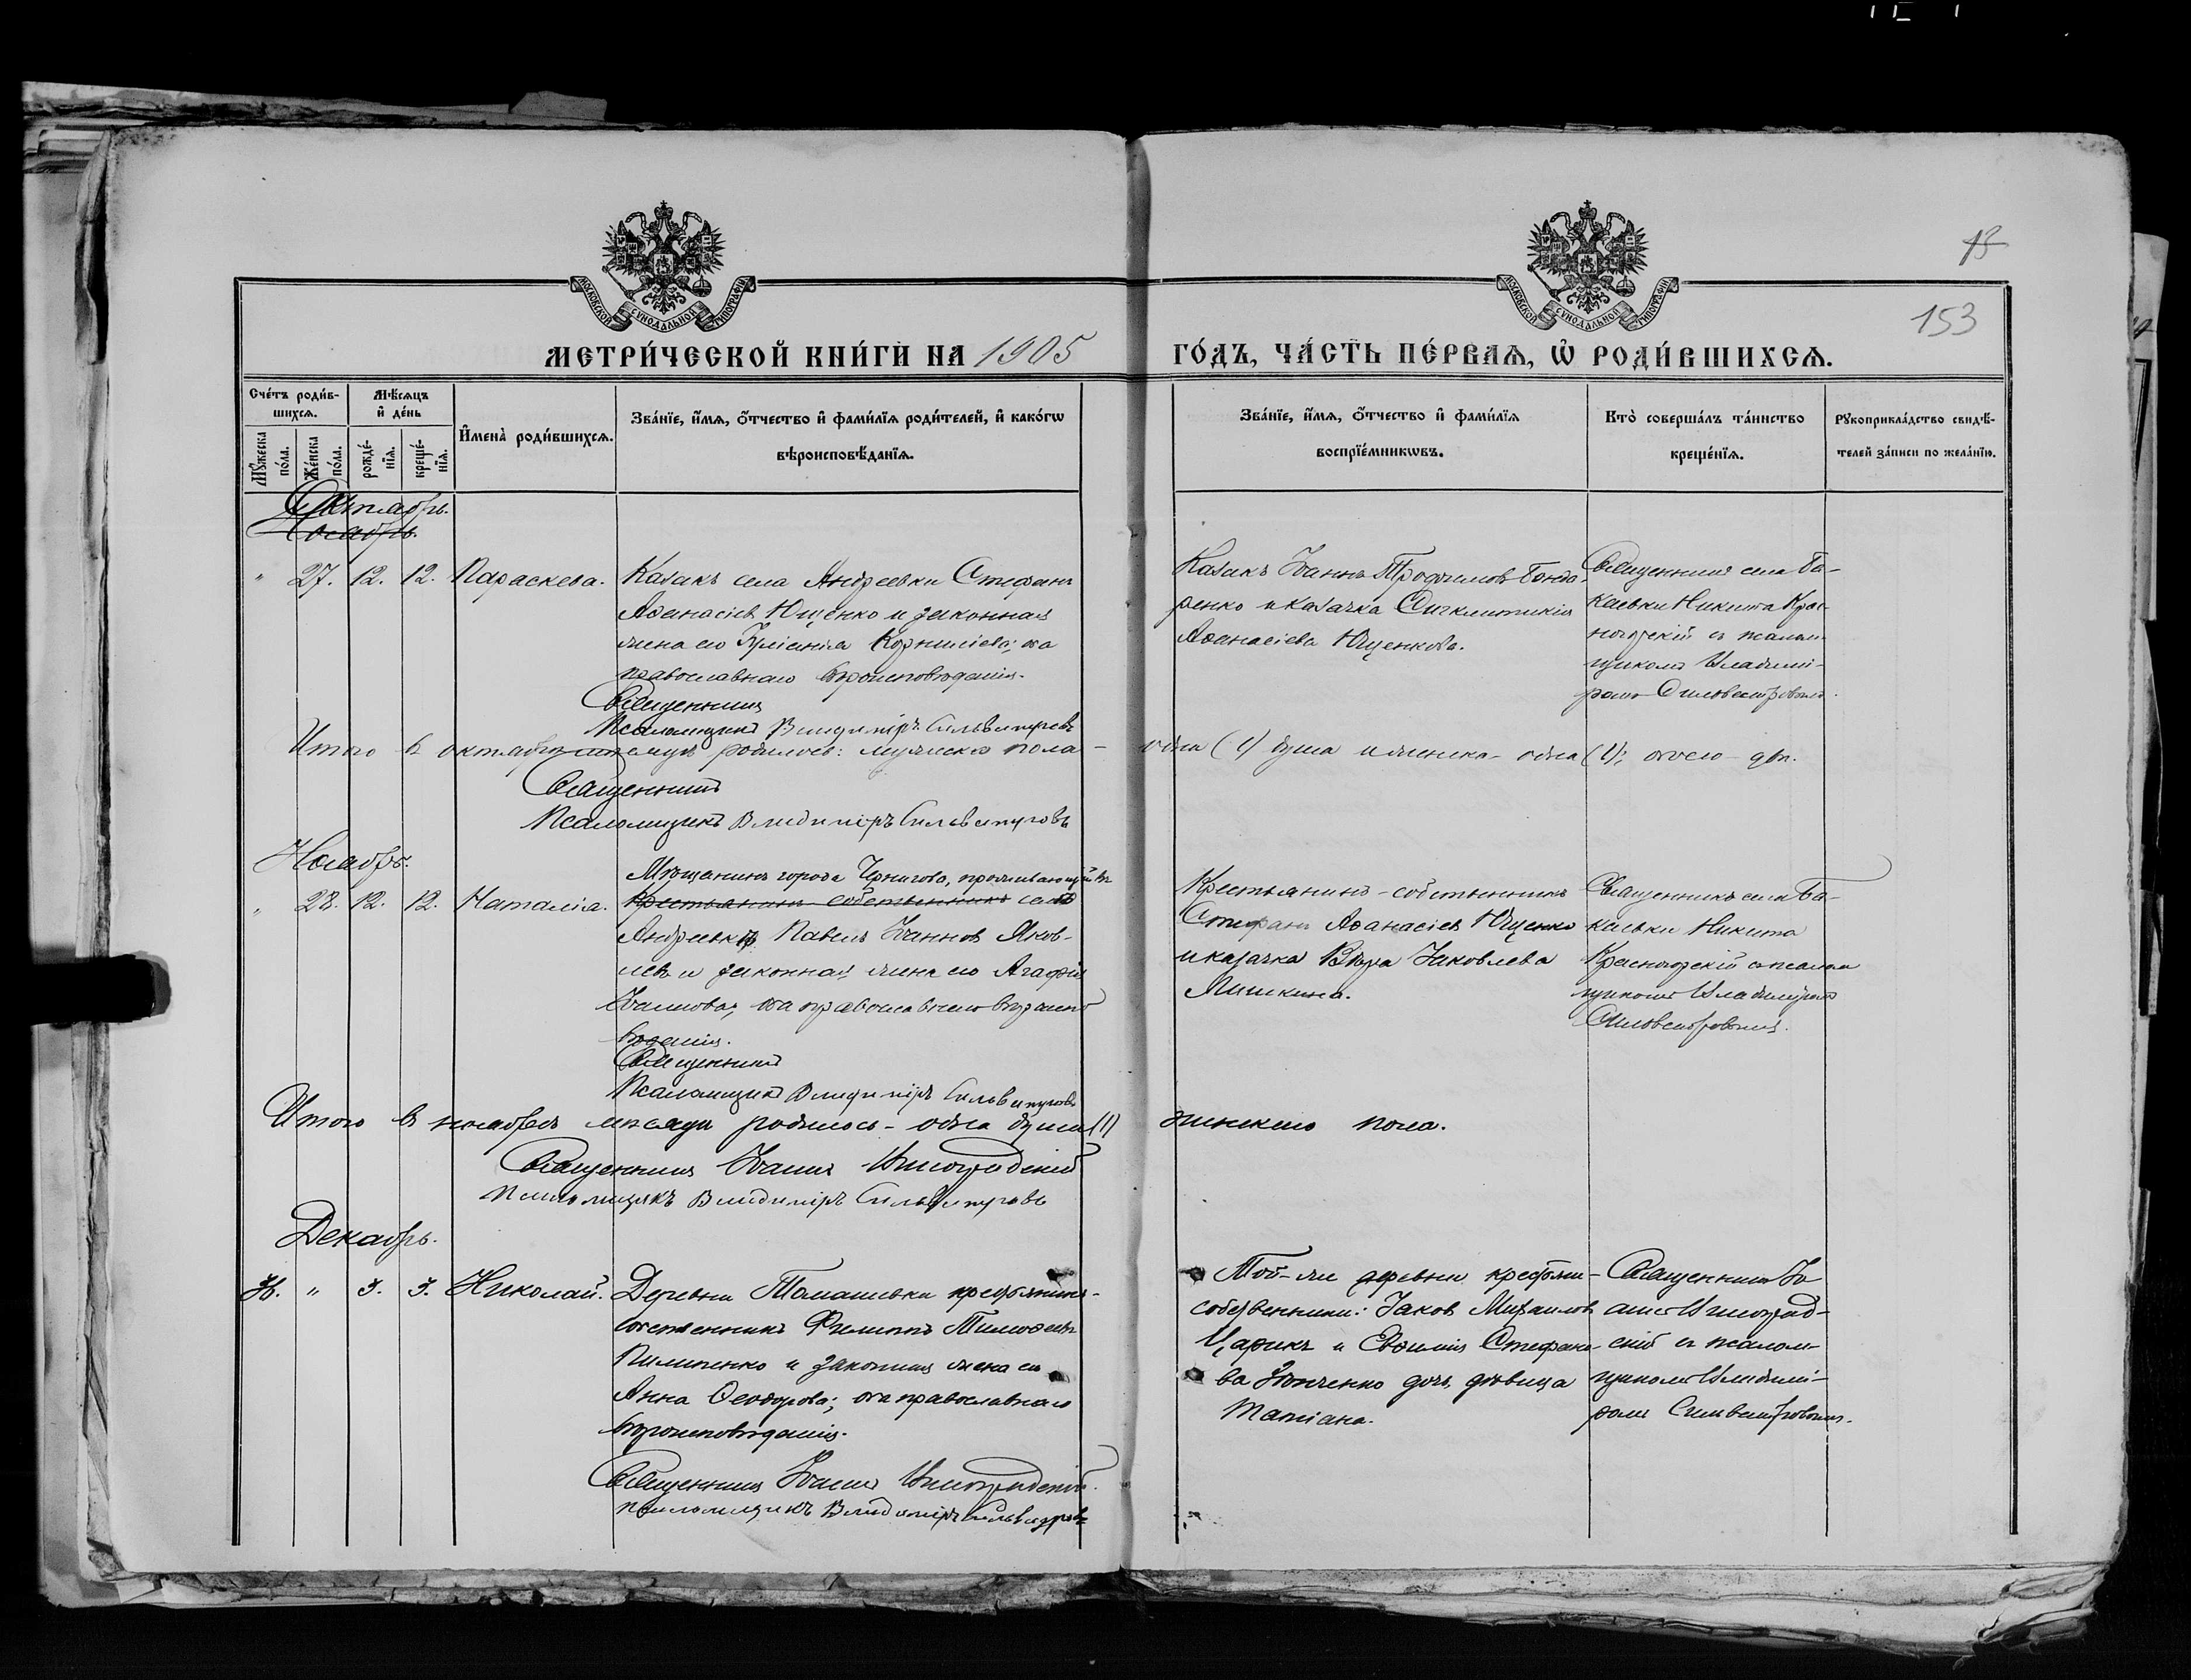 13
153
МОСКОВСКОЙ СУНОДАЛЬНОЙ ТИПОГРАФІИ
МОСКОВСКОЙ СУНОДАЛЬНОЙ ТИПОГРАФІИ
МЕТРИ́ЧЕСКОЙ КНИ́ГИ НА 1905 ГО́ДЪ, ЧА́СТЬ ПЕ́РВАѦ, Ѡ РОДИ́ВШИХСѦ.
Сче́тъ роди́в-
шихсѧ.
Мѣ́сѧцъ
и де́нь
Мꙋ́жеска
по́ла.
Же́нска
по́ла.
рожде́-
нїѧ.
креще́-
нїѧ.
И́мена̀ роди́вшихсѧ.
Зва́нїе, и́мѧ, о́тчество и фами́лїѧ роди́телей, и како́гѡ
вѣроисповѣ́данїѧ.
Зва́нїе, и́мѧ, о́тчество и фами́лїѧ
воспрїе́мникѡвъ.
Кто̀ соверша́лъ та́инство
креще́нїѧ.
Рꙋкоприкла́дство свидѣ́-
телей за́писи по жела́нїю.
Октябрь.
Ноябрь.
" 27. 12. 12. Параскева.
Казакъ села Андреевки Стефанъ
Аѳанасіевъ Ющенко и законная
жена его Корниліева; оба
православнаго вѣроисповѣданія.
Священникъ
Псаломщикъ Владиміръ Сильвестровъ
Казакъ Іоаннъ Трофимовъ Бонда-
ренко и казачка Синклитикія
Аѳанасіева Ющенкова.
Священникъ села Ба-
каевки Никита Крас-
ногорскій съ псалом-
щикомъ Владимі-
ромъ Сильвестровымъ.
Итого въ октябрѣ родилось: мужеска пола - одна (1) душа и женска - одна (1); обоего - двѣ.
Священникъ
Псаломщикъ Владиміръ Сильвестровъ
Ноябрь.
" 28. 12. 12. Наталія.
Мѣщанинъ города Чернигова, проживающій въ
Крестьянинъ собственникъ селѣ
Андреевкѣ Павелъ Іоанновъ Яков-
левъ и законная жена его Агафія
Іоаннова; оба православнаго
вѣданія.
Священникъ
Псаломщикъ Владиміръ Сильвестровъ
Крестьянинъ-собственникъ
Стефанъ Аѳанасіевъ Ющенко
и казачка Вѣра Іаковлева
Лишкина.
Священникъ села Ба-
каевки Никита
Красногорскій съ псалом
щикомъ Владиміромъ
Сильвестровымъ.
Итого въ ноябрѣ мѣсяцѣ родилось - одна душа (1) женскаго пола.
Священникъ Іоаннъ Виноградскій
Псаломщикъ Владиміръ Сильвестровъ
Декабрь.
" 3. 3. Николай.
Деревни Томашевки крестьянинъ-
собственникъ Филиппъ Тимоѳеевъ
Пилипенко и законная жена его
Анна Ѳеодорова; оба православнаго
вѣроисповѣданія.
Священникъ Іоаннъ Виноградскій.
псаломщикъ Владиміръ Сильвестровъ
Той-же деревни крестьяне-
собственники: Іаковъ Михаиловъ
Царикъ и Евѳимія Стефано-
ва дочь дѣвица
Татіана.
Священникъ Іо-
аннъ Виноград-
скій съ псалом-
щикомъ Владимі-
ромъ Сильвестровымъ.